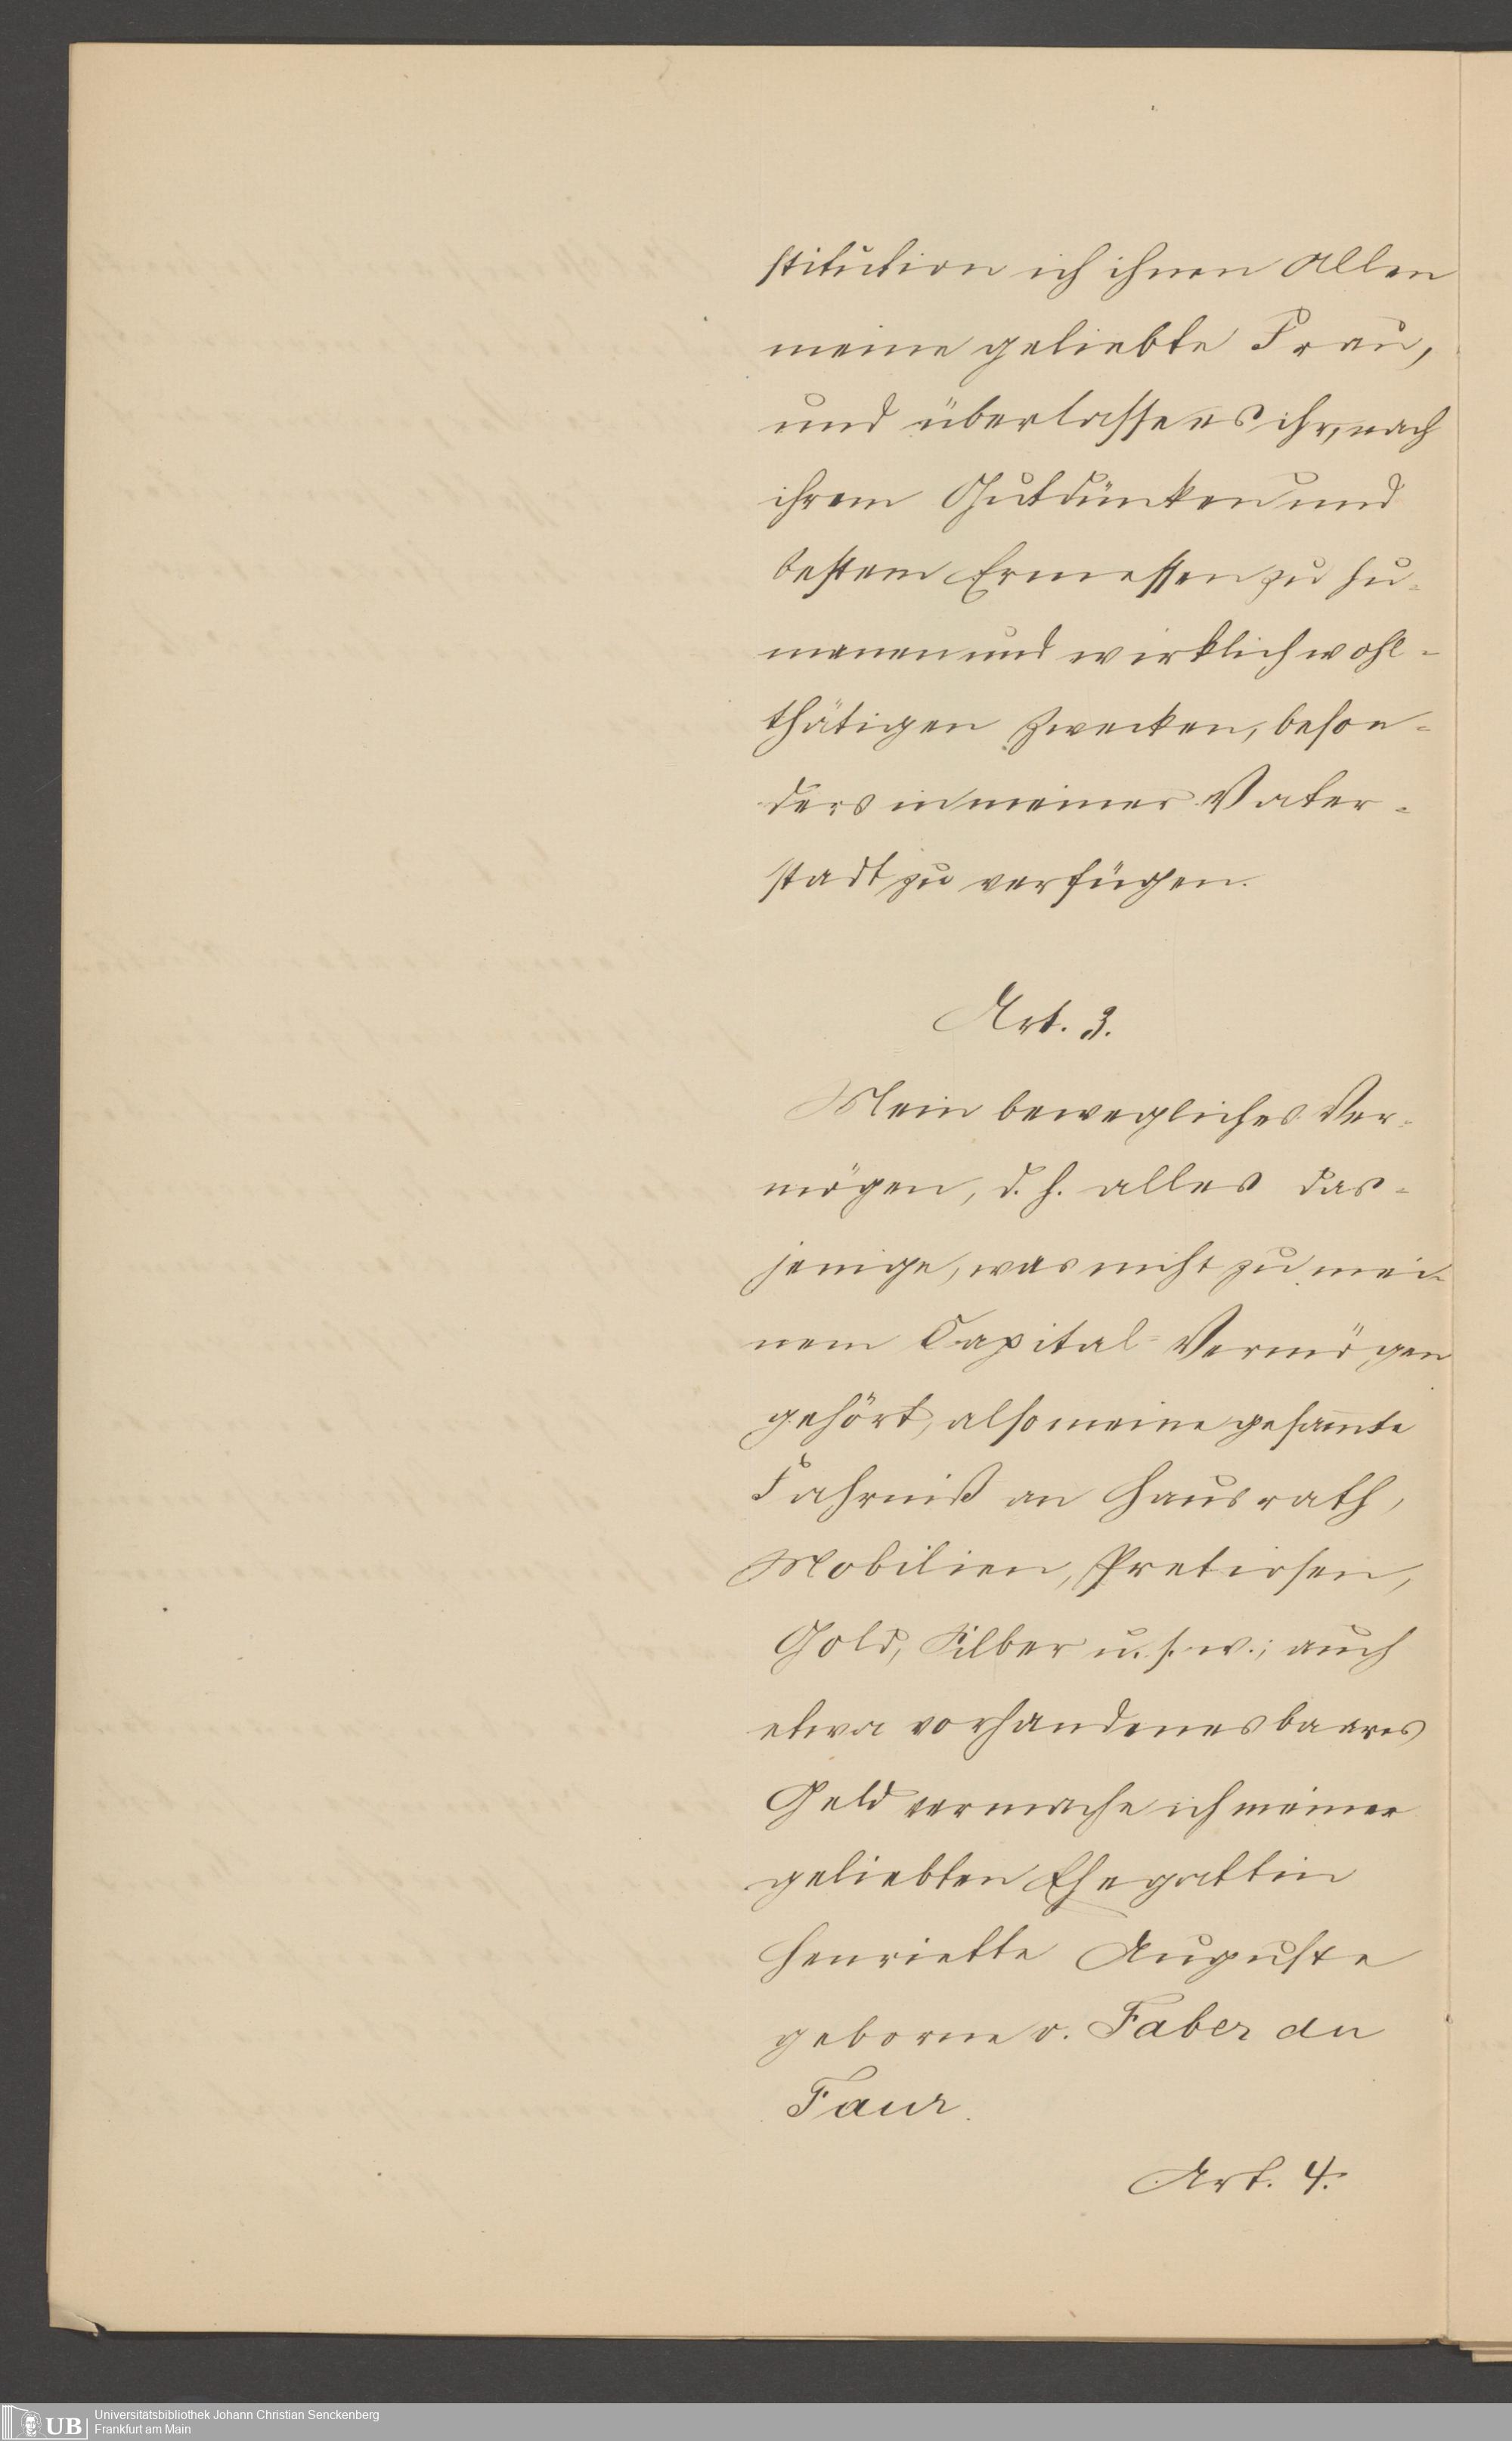 stitution ich ihnen Allen
meine geliebte Frau,
und überlasse es ihr, nach
ihrem Gutdünken und
bestem Ermessen zu hu-
manen und wirklich wohl-
thätigen Zwecken, beson-
ders in meiner Vater-
stadt zu verfügen.
Art. 3.
Mein bewegliches Ver-
mögen, d. h. alles das-
jenige, was nicht zu mei-
nem Capital-Vermögen
gehört, also meine gesam̄te
Fahrniß an Hausrath,
Mobilien, Pretiosen,
Gold, Silber u. s. w.; auch
etwa vorhandenes baares
Geld vermache ich meiner
geliebten Ehegattin
Henriette Auguste
geborne v. Faber du
Faur.
Art. 4.
UB
Universitätsbibliothek Johann Christian Senckenberg
Frankfurt am Main